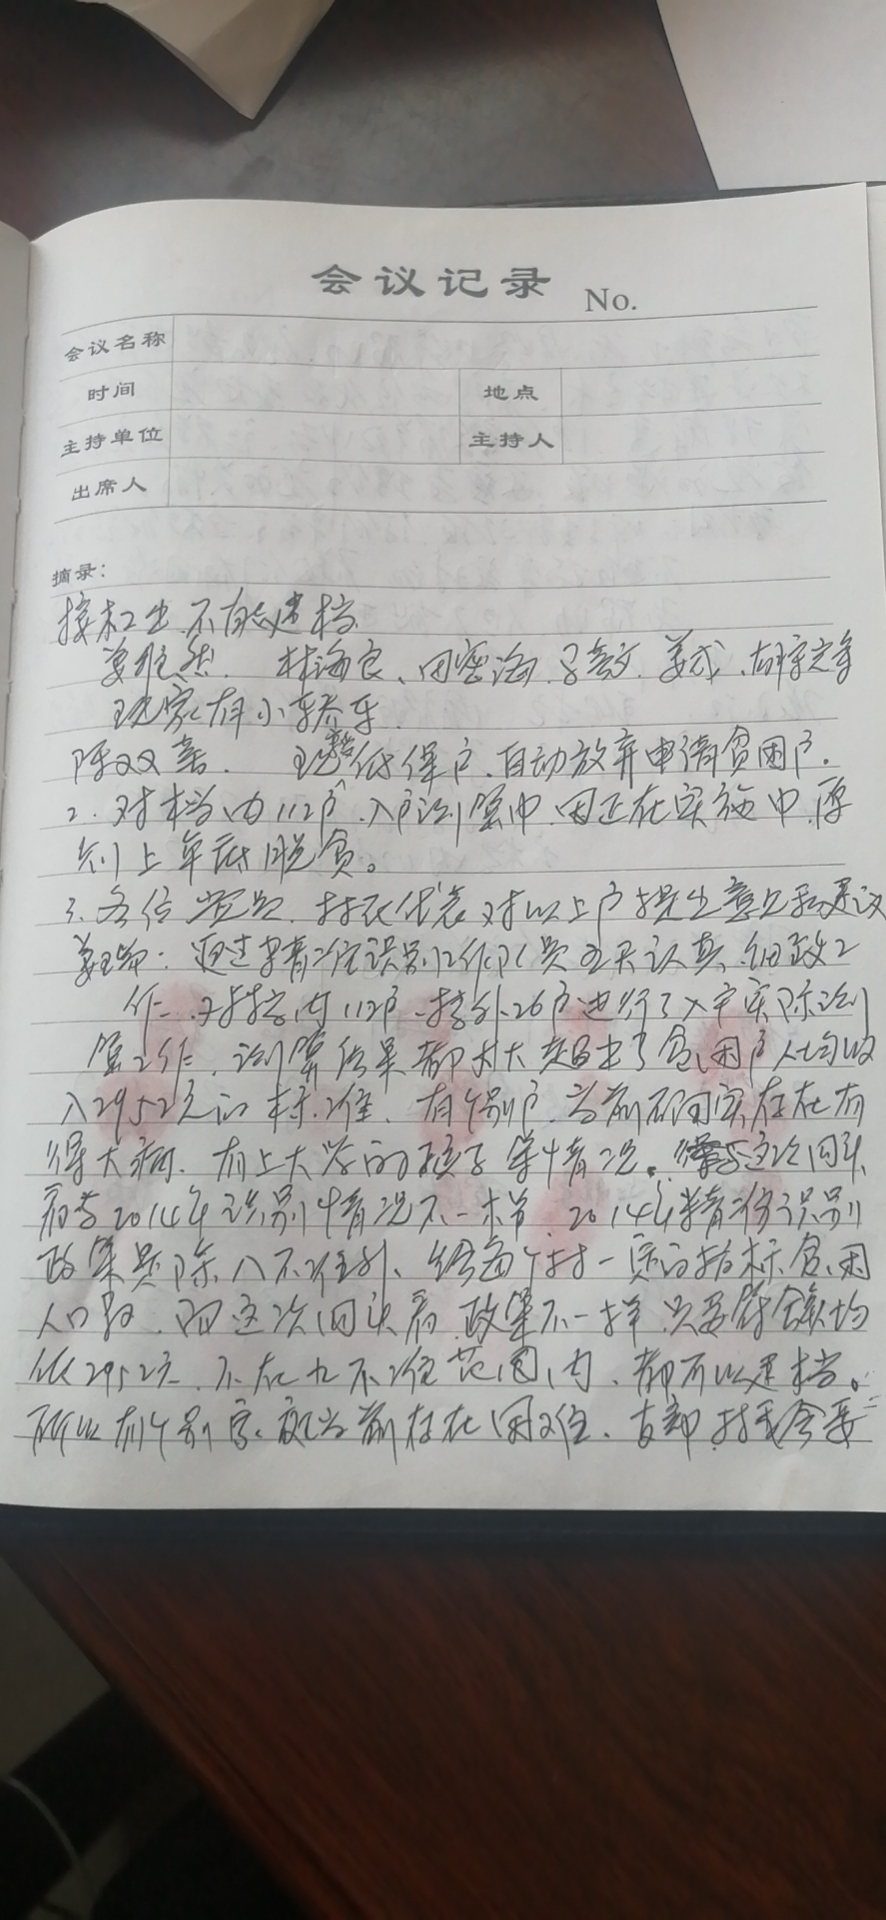 会议记录 No.
会议名称
时间 地点
主持单位 主持人
出席人
摘录：
不能建档
林海良、田 海
现家有小轿车
陈双喜. 低保户、自动放弃申请贫困户.
2. 对档内112户、入户测算中、因正在实施中、原
则上年底脱贫。
3. 各位党员、村民代表对以上户提出意见和建议
姜 : 通过精准识别工作队员 天认真、细致工
作、对档内112户、档外26户进行了入户实际测
算工作、测算结果都大大超出了贫困户人均收
入2952元的标准、有个别户、当前不同实存在有
得大病、有上大学的孩子等情况。 这次回头
看与2014年识别情况不一样、2014年精准识别
政策是除八不准外、给每个村一定的指标贫困
人口数、而这次回头看、政策不一样、只要 均
低2952元、不在九不准范围内、都可以建档。
所以有个别家庭当前存在困难、支部、村委会要